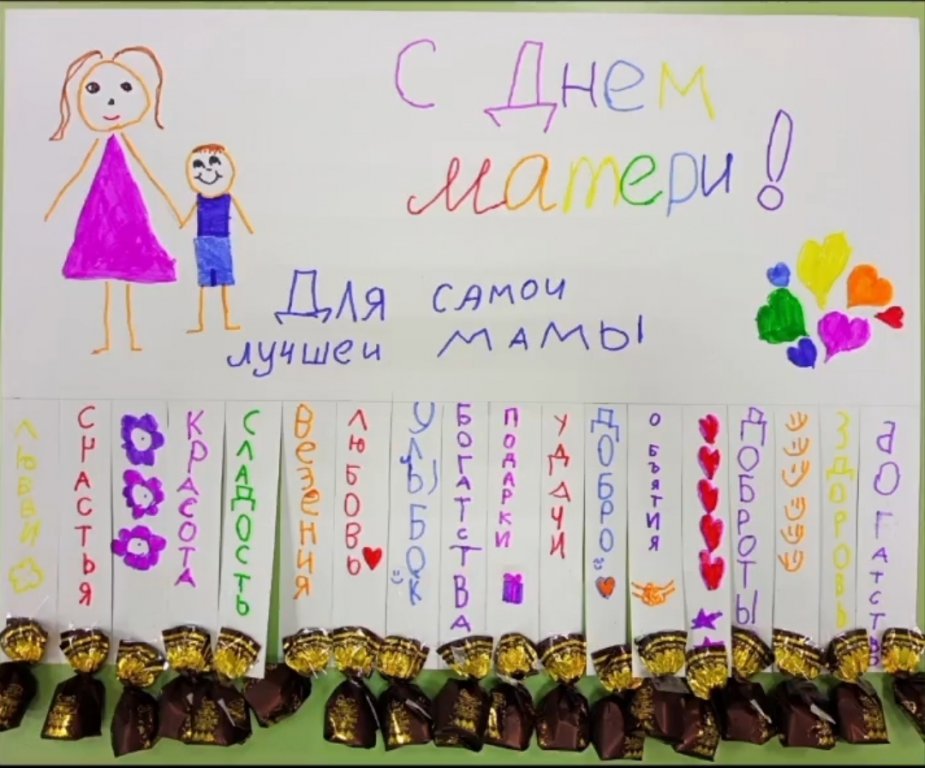 С Днем
матери!
Для самой
лучшей мамы
Любви
Счастья
Красота
Сладость
Везения
Любовь
Улыбок
Богатства
Подарки
Удачи
Добро
Объятия
Доброты
Здоровь